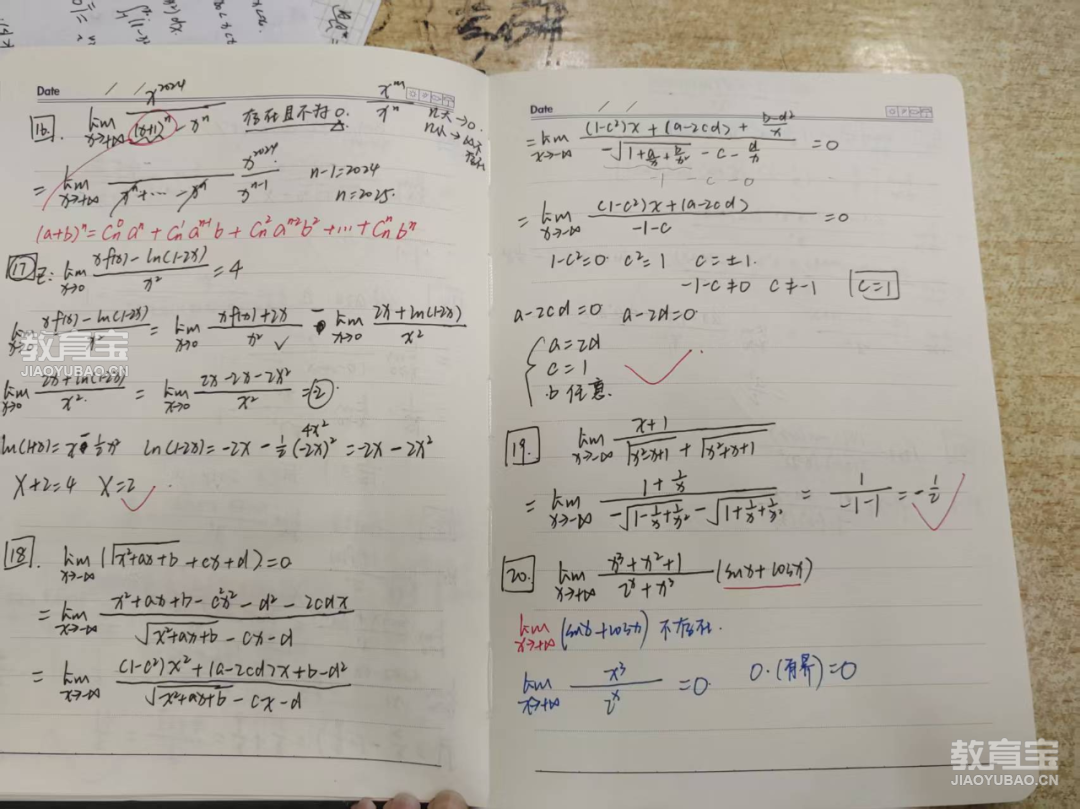 Date
16. lim x→+∞ x^2024 / ((x+1)^n - x^n) 存在且不为0.
x^m / x^n
n大→0.
= lim x→+∞ x^2024 / (x^n + … - x^n) x^2024 / x^(n-1) n-1=2024
n=2025.
(a+b)^n = Cn^0 a^n + Cn^1 a^(n-1) b + Cn^2 a^(n-2) b^2 + … + Cn^n b^n
17 Z: lim x→0 (xf(x) - ln(1-2x)) / x^2 = 4
lim x→0 (xf(x) - ln(1-2x)) / x^2 = lim x→0 (xf(x) + 2x) / x^2 - lim x→0 (2x + ln(1-2x)) / x^2
lim x→0 (2x + ln(1-2x)) / x^2 = lim x→0 (2x - 2x - 2x^2) / x^2 = 2
4x^2
ln(1+x) = x - 1/2 x^2 ln(1-2x) = -2x - 1/2 (-2x)^2 = -2x - 2x^2
X+2=4 X=2
18. lim x→-∞ (√(x^2+ax+b) + cx + d) = 0
= lim x→-∞ (x^2 + ax + b - c^2x^2 - d^2 - 2cdx) / (√(x^2+ax+b) - cx - d)
= lim x→-∞ ((1-c^2)x^2 + (a-2cd)x + b - d^2) / (√(x^2+ax+b) - cx - d)
Date
= lim x→-∞ ((1-c^2)x + (a-2cd) + (b-d^2)/x) / (-√(1 + a/x + b/x^2) - c - d/x) = 0
-1 - c - 0
= lim x→-∞ ((1-c^2)x + (a-2cd)) / (-1-c) = 0
1-c^2=0 c^2=1 c=±1.
-1-c≠0 c≠-1 c=1
a-2cd=0 a-2d=0
a=2d
c=1
b任意.
19. lim x→-∞ (x+1) / (√(x^2-x+1) + √(x^2+x+1))
= lim x→-∞ (1 + 1/x) / (-√(1 - 1/x + 1/x^2) - √(1 + 1/x + 1/x^2)) = 1 / (-1-1) = -1/2
20. lim x→+∞ (x^3 + x^2 + 1) / (2^x + x^3) (sinx + cosx)
lim x→+∞ (sinx + cosx) 不存在.
lim x→+∞ x^3 / 2^x = 0 0·(有界)=0
教育宝
JIAOYUBAO.CN
教育宝
JIAOYUBAO.CN